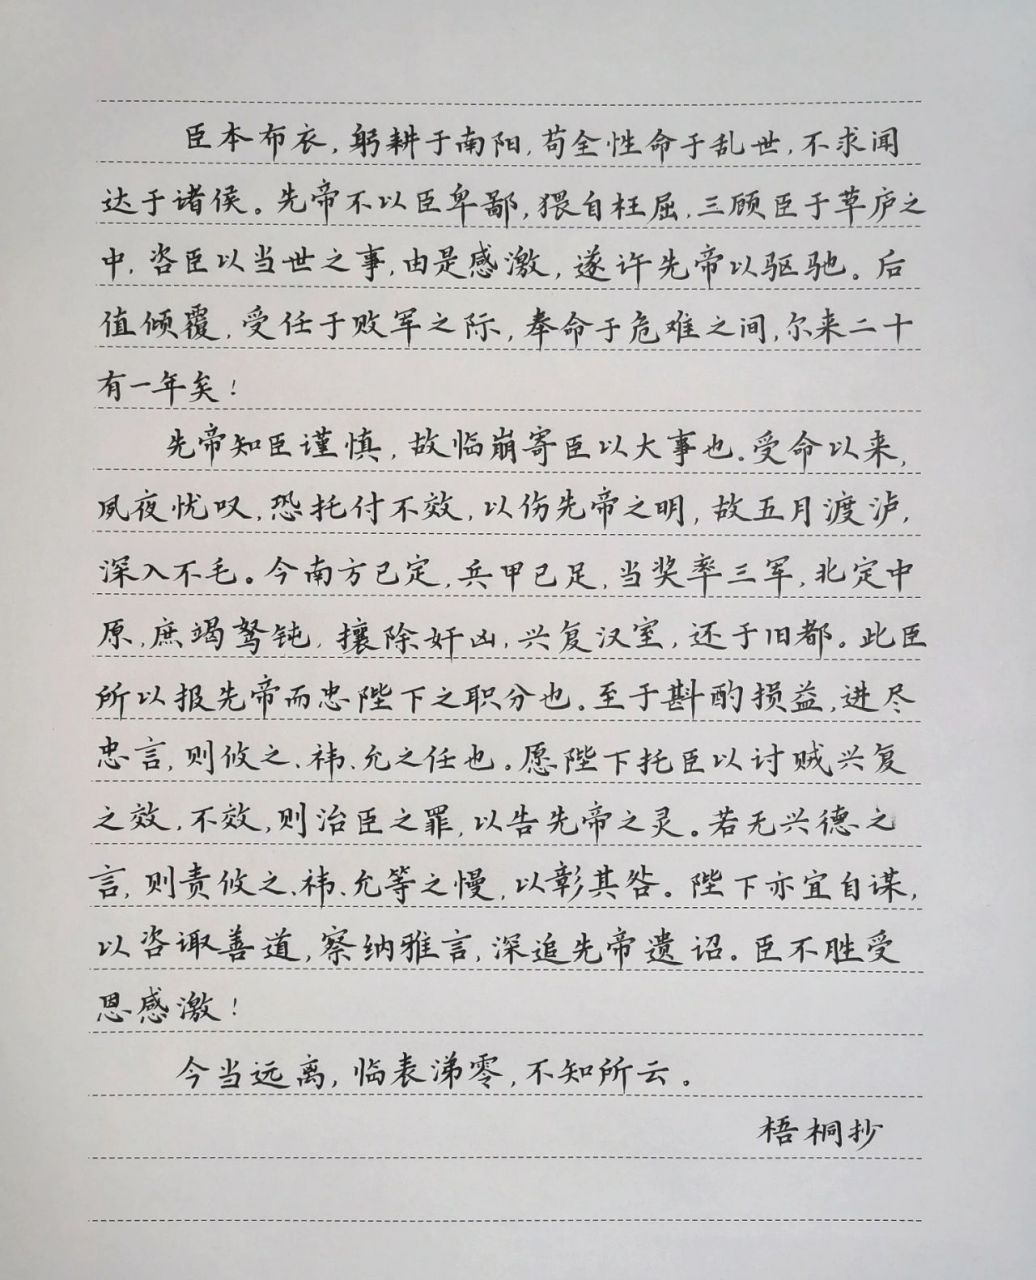 臣本布衣,躬耕于南阳,苟全性命于乱世,不求闻
达于诸侯。先帝不以臣卑鄙,猥自枉屈,三顾臣于草庐之
中,咨臣以当世之事,由是感激,遂许先帝以驱驰。后
值倾覆,受任于败军之际,奉命于危难之间,尔来二十
有一年矣!
先帝知臣谨慎,故临崩寄臣以大事也。受命以来,
夙夜忧叹,恐托付不效,以伤先帝之明,故五月渡泸,
深入不毛。今南方已定,兵甲已足,当奖率三军,北定中
原,庶竭驽钝,攘除奸凶,兴复汉室,还于旧都。此臣
所以报先帝而忠陛下之职分也。至于斟酌损益,进尽
忠言,则攸之、祎、允之任也。愿陛下托臣以讨贼兴复
之效,不效,则治臣之罪,以告先帝之灵。若无兴德之
言,则责攸之、祎、允等之慢,以彰其咎。陛下亦宜自谋,
以咨诹善道,察纳雅言,深追先帝遗诏。臣不胜受
恩感激!
今当远离,临表涕零,不知所云。
梧桐抄